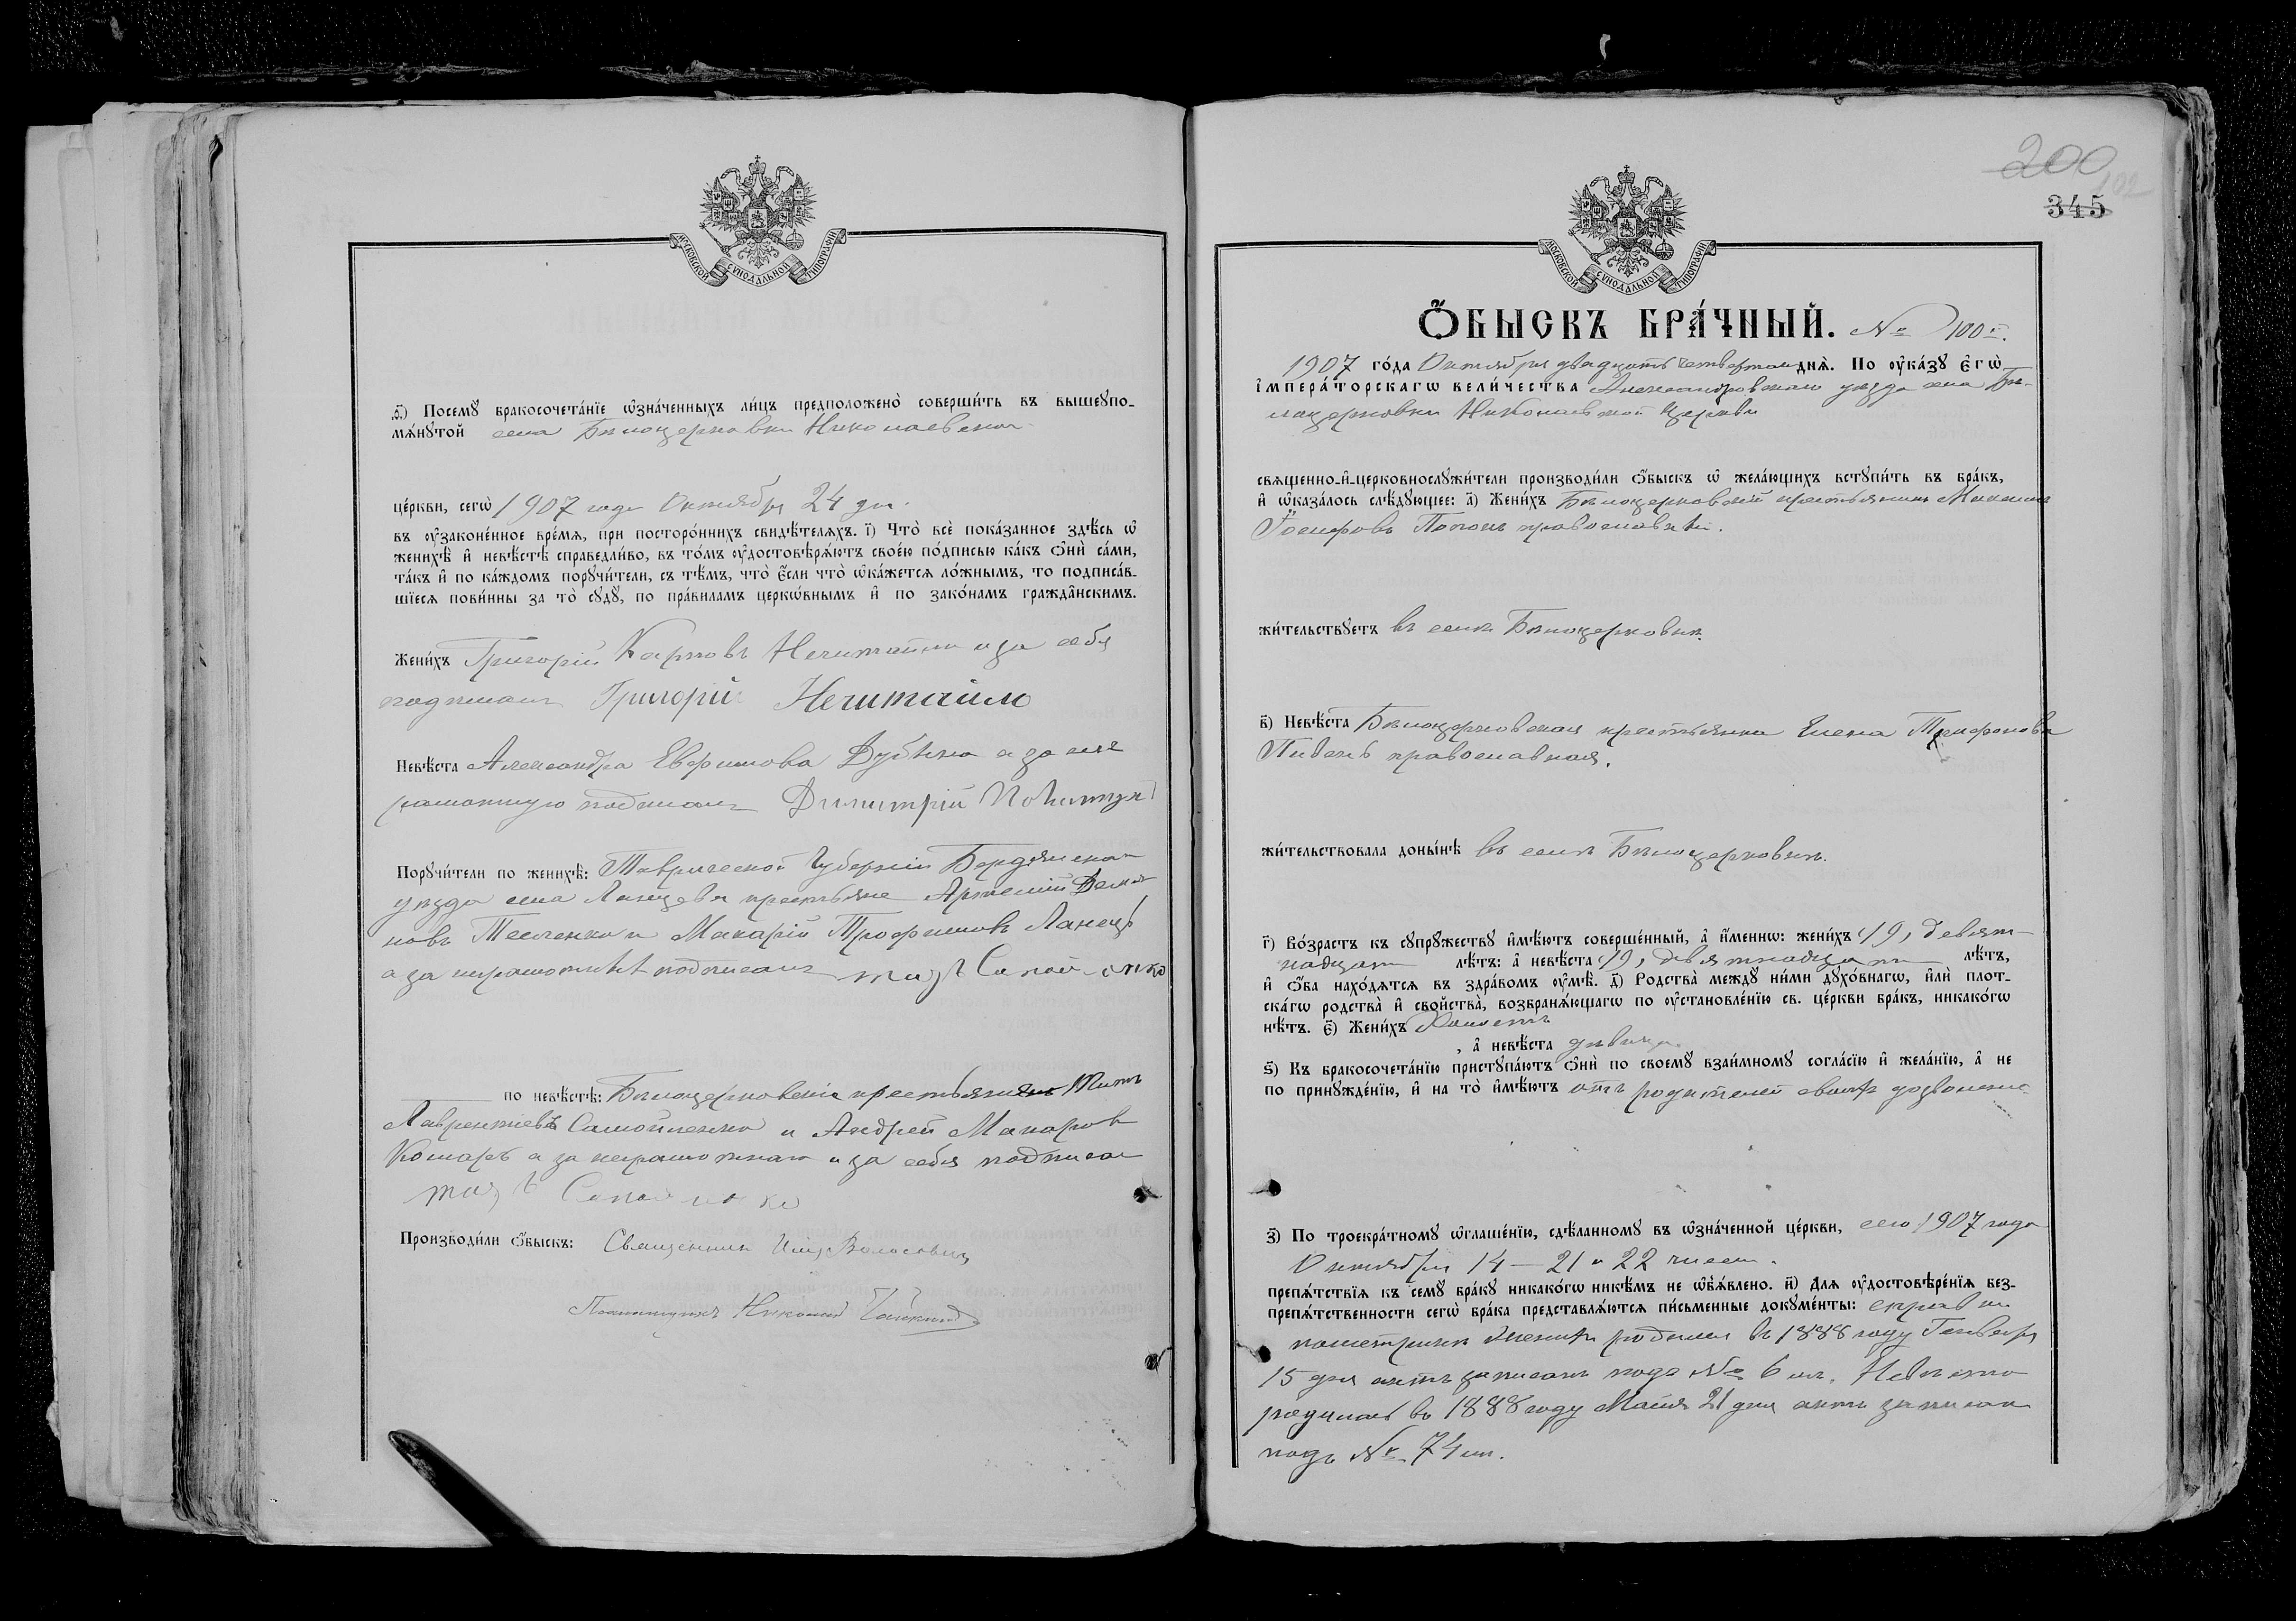 МОСКОВСКОЙ СѴНОДАЛЬНОЙ ТИПОГРАФІИ
Ѳ҃) Посемꙋ бракосочета́нїе ѡ҆зна́ченныхъ ли́цъ предположено̀ соверши́ть въ вышеꙋпо-
мѧ́нꙋтой села Бѣлоцерковки Николаевской
це́ркви, сегѡ̀ 1907 года Октября 24 дня.
въ ᲂу҆зако́ненное вре́мѧ, при посторо́ннихъ свидѣ́телѧхъ. і҃) Что̀ всѐ пока́занное здѣ́сь ѡ҆
женихѣ̀ и҆ невѣ́стѣ справедли́во, въ то́мъ ᲂу҆достовѣрѧ́ютъ свое́ю по́дписью ка́къ ѻ҆нѝ са́ми,
та́къ и҆ по ка́ждомъ порꙋчи́тели, съ тѣ́мъ, что̀ є҆́сли что̀ ѡ҆ка́жетсѧ ло́жнымъ, то подписа́в-
шїесѧ пови́нны за то̀ сꙋдꙋ̀, по пра́виламъ церкѡ́внымъ и҆ по зако́намъ гражда̑нскимъ.
Жени́хъ Григорій Карповъ Нечитайло и за себя
Григорій Нечитайло
Невѣ́ста Александра Евфимова а за нея
Димитрій
Порꙋчи́тели по женихѣ̀: Таврической Губерніи Бердянскаго
уѣзда села крестьяне Артемій
новъ Тесленко и Макарій Трофимовъ Ланецъ
а за неграмотныхъ подписалъ
по невѣ́стѣ: Бѣлоцерковскіе крестьяне Титъ
Лаврентіевъ Самойленко и Андрей Макаровъ
Комаръ а за неграмотнаго и за себя подписалъ
Титъ Самойленко
Производи́ли ѻ҆́быскъ: Священникъ Волосевичъ
Псаломщикъ Николай
200
102
345
МОСКОВСКОЙ СѴНОДАЛЬНОЙ ТИПОГРАФІИ
Ѻ҆́БЫСКЪ БРА́ЧНЫЙ. № 100й.
1907 го́да Октября двадцать четвертаго днѧ̀. По ᲂу҆ка́зꙋ є҆гѡ̀
і҆мпера́торскагѡ вели́чества Александровскаго уѣзда села Бѣ-
лоцерковки Николаевской церкви
свѧщенно-и҆-церковнослꙋжи́тели производи́ли ѻ҆́быскъ ѡ҆ жела́ющихъ встꙋпи́ть въ бра́къ,
и҆ ѡ҆каза́лось слѣ́дꙋющее: а҃) Жени́хъ Бѣлоцерковскій крестьянинъ
Іосифовъ Попокъ православный.
жи́тельствꙋетъ въ селѣ Бѣлоцерковкѣ.
в҃) Невѣ́ста Бѣлоцерковская крестьянка Елена Трифонова
Пивень православная.
жи́тельствовала доны́нѣ въ селѣ Бѣлоцерковкѣ.
г҃) Во́зрастъ къ сꙋпрꙋ́жествꙋ и҆мѣ́ютъ соверше́нный, а҆ и҆́меннѡ: жени́хъ 19, девят-
надцать лѣ́тъ: а҆ невѣ́ста 19, девятнадцать лѣ́тъ,
и҆ ѻ҆́ба нахо́дѧтсѧ въ здра́вомъ ᲂу҆мѣ̀. д҃) Родства̀ междꙋ ни́ми дꙋхо́внагѡ, и҆лѝ плот-
ска́гѡ родства̀ и҆ свойства̀, возбранѧ́ющагѡ по ᲂу҆становле́нїю св. це́ркви бра́къ, никако́гѡ
нѣ́тъ. є҃) Жени́хъ Холостъ
, а҆ невѣ́ста дѣвица.
ѕ҃) Къ бракосочета́нїю пристꙋпа́ютъ ѻ҆нѝ по своемꙋ̀ взаи́мномꙋ согла́сїю и҆ жела́нїю, а҆ не
по принꙋжде́нїю, и҆ на то̀ и҆мѣ́ютъ отъ родителей своихъ дозволеніе
з҃) По троекра́тномꙋ ѡ҆глаше́нїю, сдѣ́ланномꙋ въ ѡ҆зна́ченной це́ркви, сего 1907 года
Октября 14 — 21 и 22 чиселъ.
препѧ́тствїѧ къ семꙋ̀ бра́кꙋ никако́гѡ никѣ́мъ не ѡ҆б̾ѧ́влено. и҃) Длѧ ᲂу҆достовѣре́нїѧ без-
препѧ́тственности сегѡ̀ бра́ка представлѧ́ютсѧ пи́сьменные докꙋме́нты: справки
по метрикѣ Женихъ родился въ 1888 году Генваря
15 дня актъ записанъ подъ № 6 м. Невѣста
родилась въ 1888 году Маія 21 дня актъ записанъ
подъ № 74